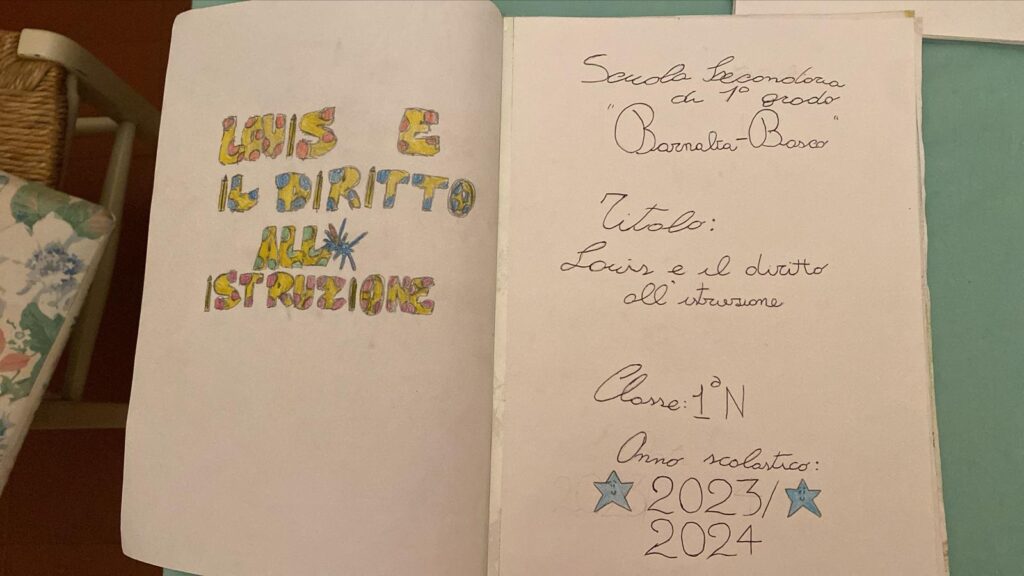 LOUIS E
IL DIRITTO
ALL'
ISTRUZIONE
Scuola Secondaria
di 1° grado
"Barnaba-Bosco"
Titolo:
Louis e il diritto
all'istruzione
Classe: 1ªN
Anno scolastico:
2023/
2024